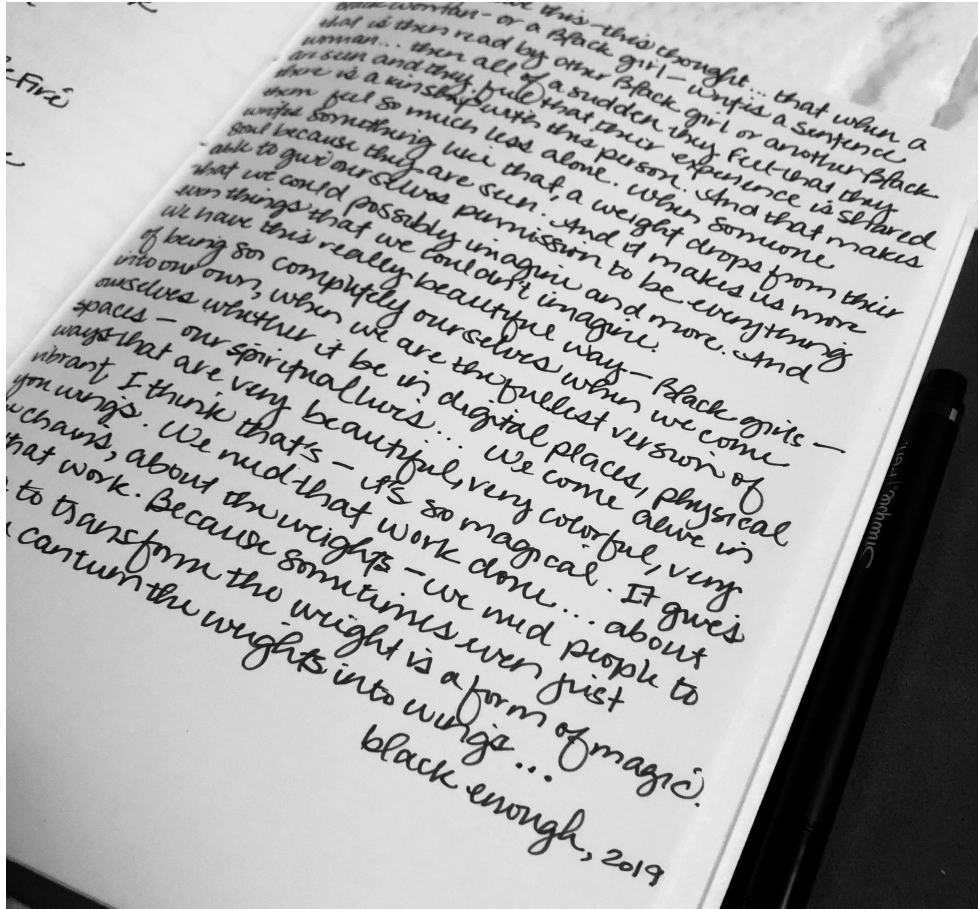 Fire
this - this thought... that when a
Black woman - or a Black girl - writes a sentence
that is then read by other Black girl or another Black
woman... then all of a sudden they feel that they
are seen and they feel that their experience is shared
there is a kinship with this person. And that makes
them feel so much less alone. When someone
writes something like that, a weight drops from their
soul because they are seen. And it makes us more
able to give ourselves permission to be everything
that we could possibly imagine and more. And
even things that we couldn't imagine.
We have this really beautiful way - Black girls -
of being so completely ourselves when we come
into our own, when we are the fullest version of
ourselves whether it be in digital places, physical
spaces - our spiritual lives... We come alive in
ways that are very beautiful, very colorful, very
vibrant, I think that's - it's so magical. It gives
you wings. We need that work done... about
chains, about the weights - we need people to
that work. Because sometimes even just
to transform the weight is a form of magic.
can turn the weights into wings...
black enough, 2019